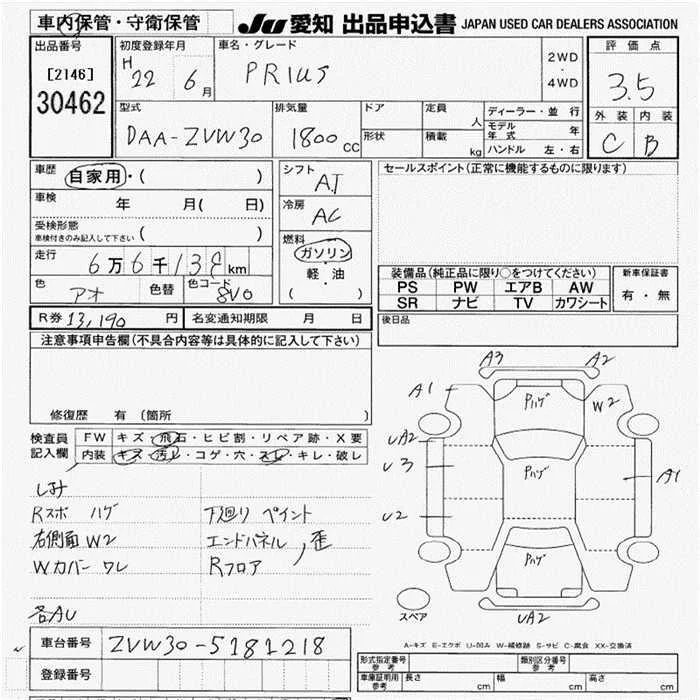 車内保管・守衛保管
JU 愛知 出品申込書 JAPAN USED CAR DEALERS ASSOCIATION
出品番号
[2146]
30462
初度登録年月
H 22 6月
車名・グレード
PRIUS
2WD
・
4WD
評価点
3.5
外装 内装
C B
型式
DAA-ZVW30
排気量
1800cc
ドア
形状
定員
人
積載
kg
ディーラー・並行
モデル年式 年
ハンドル 左・右
車歴
自家用・( )
車検
年 月( 日)
受検形態
車検付きのみ記入して下さい ( )
走行
6万6千13 km
色
アオ
色替
色コード
8V0
シフト
AT
冷房
AC
燃料
ガソリン
・
軽・油
( )
セールスポイント(正常に機能するものに限ります)
装備品(純正品に限り○をつけてください)
PS PW エアB AW
SR ナビ TV カワシート
新車保証書
有・無
R券 13,190円
名変通知期限 月 日
後日品
注意事項申告欄(不具合内容等は具体的に記入して下さい)
修復歴 有 (箇所 )
検査員
記入欄
FW キズ・飛石・ヒビ割・リペア跡・X要
内装 キズ・汚レ・コゲ・穴・スレ・キレ・破レ
シミ
Rスポ ハゲ 下廻り ペイント
右側面 W2 エンドパネル 歪
Wカバー ワレ Rフロア
各AU
A3 A2
A1
Pハゲ
W2
UA2
U3
Pハゲ
A1
U2
Pハゲ
UA2
スペア
A-キズ E-エクボ U-凹み W-補修跡 S-サビ C-腐食 XX-交換済
車台番号
ZVW30-5181218
登録番号
形式指定番号
参考
類別区分番号
参考
車庫証明用
参考
長さ cm 幅 cm 高さ cm